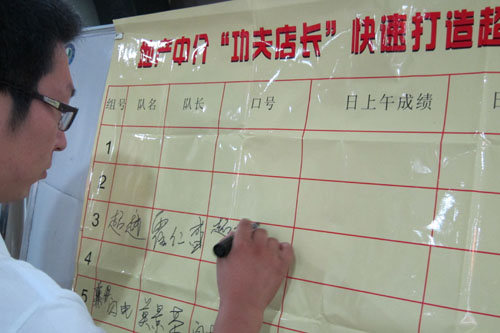 地产中介“功夫店长”快速打造超
组号 队名 队长 口号 日上午成绩 日
1
2
3 超越 霍仁盛 超
4
5 闪电